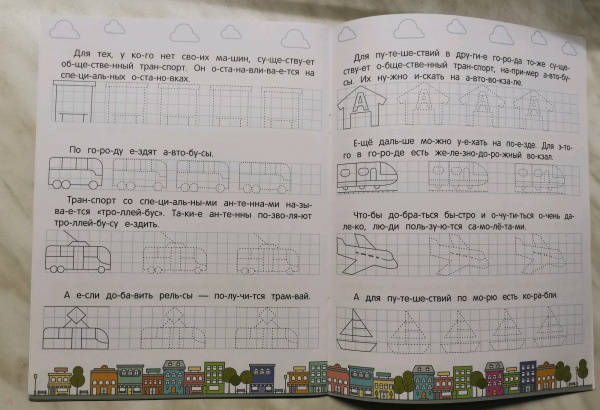 Для тех, у ко-го нет сво-их ма-шин, су-ще-ству-ет
об-ще-стве-нный тран-спорт. Он о-ста-на-вли-ва-е-тся на
спе-ци-аль-ных о-ста-но-вках.
По го-ро-ду е-здят а-вто-бу-сы.
Тран-спорт со спе-ци-аль-ны-ми ан-те-нна-ми на-зы-
ва-е-тся «тро-ллей-бус». Та-ки-е ан-те-нны по-зво-ля-ют
тро-ллей-бу-су е-здить.
А е-сли до-ба-вить рель-сы — по-лу-чи-тся трам-вай.
Для пу-те-ше-ствий в дру-ги-е го-ро-да то-же су-ще-
ству-ет о-бще-стве-нный тран-спорт, на-при-мер а-вто-бу-
сы. Их ну-жно и-скать на а-вто-во-кза-ле.
А
А
А
А
Е-щё даль-ше мо-жно у-е-хать на по-е-зде. Для э-то-
го в го-ро-де есть же-ле-зно-до-ро-жный во-кзал.
Что-бы до-бра-ться бы-стро и о-чу-ти-ться о-чень да-
ле-ко, лю-ди поль-зу-ю-тся са-мо-лё-та-ми.
А для пу-те-ше-ствий по мо-рю есть ко-ра-бли.